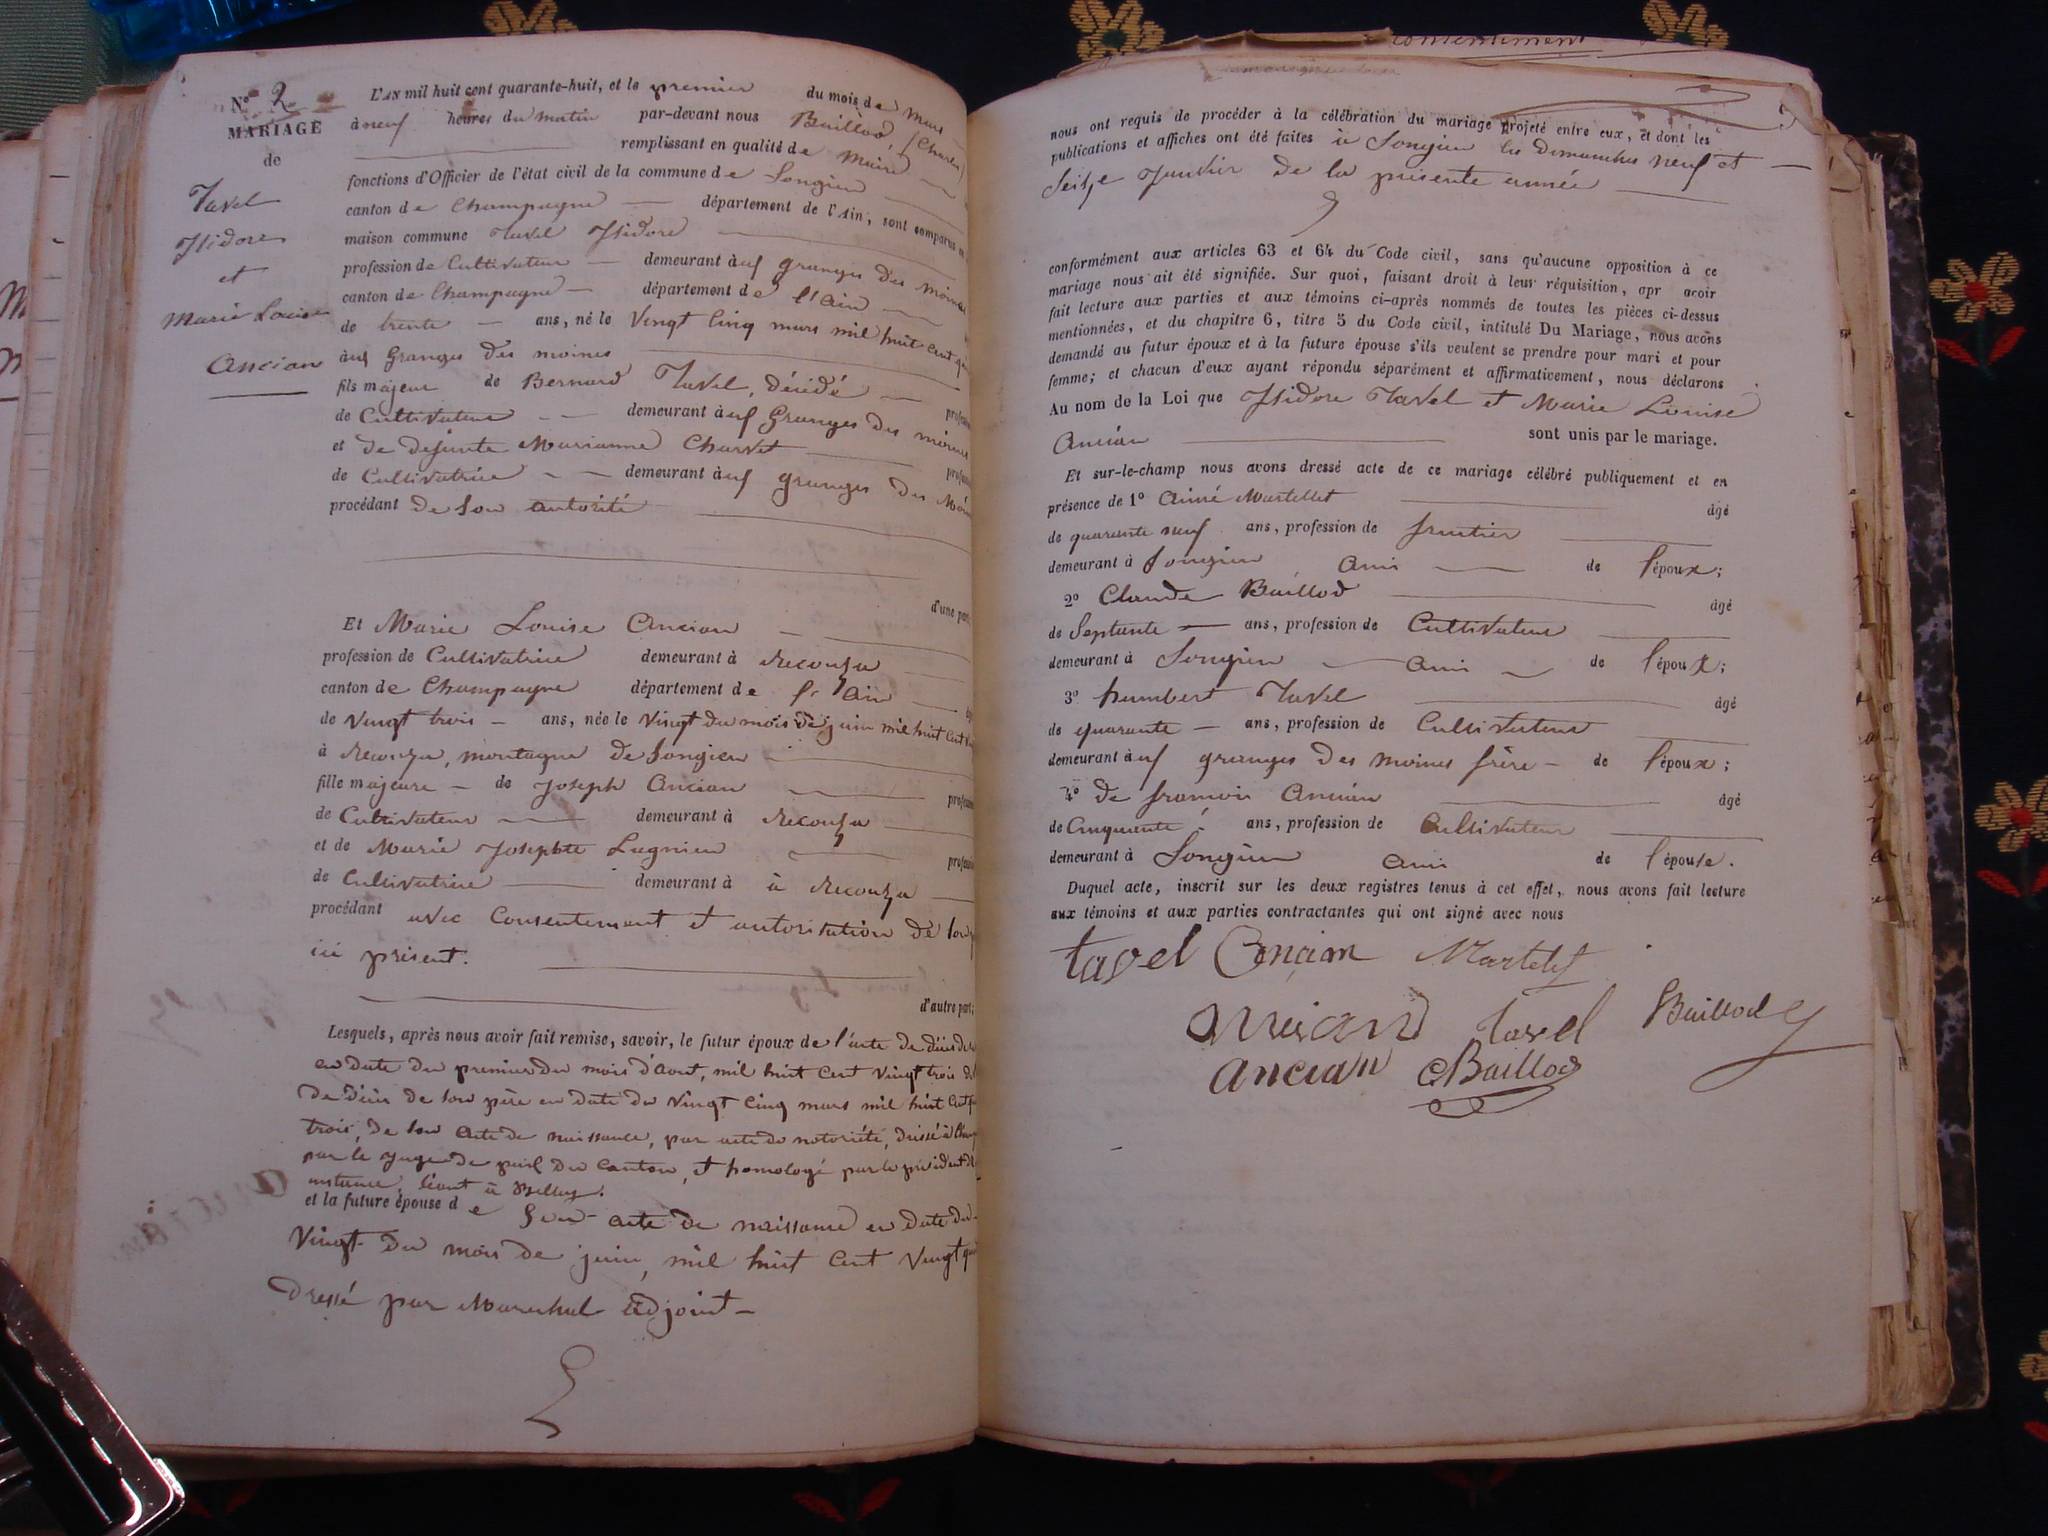 N° 2
MARIAGE
de
Tavel
Isidore
et
Marie Louise
Ancian
L'AN mil huit cent quarante-huit, et le premier du mois de Mars
à neuf heures du matin par-devant nous Baillod, (Charles)
remplissant en qualité de Maire
fonctions d'Officier de l'état civil de la commune de Songieu
canton de Champagne département de l'Ain, sont comparus en
maison commune Tavel Isidore
profession de Cultivateur demeurant aux granges des moines
canton de Champagne département de l'Ain
de trente ans, né le Vingt Cinq mars mil huit cent
aux Granges des moines
fils majeur de Bernard Tavel, décidé
de Cultivateur demeurant aux Granges des moines
et de defunte Marianne Charvet
de Cultivatrice demeurant aux granges des Moines
procédant de son autorité
d'une part
Et Marie Louise Ancian
profession de Cultivatrice demeurant à
canton de Champagne département de l'Ain
de Vingt trois ans, née le Vingt du mois de juin mil huit Cent
à montagne de Songieu
fille majeure de Joseph Ancian
de Cultivateur demeurant à
et de Marie Josephte Lagnieu
de Cultivatrice demeurant à à
procédant avec Consentement et autorisation de son
ici présent.
d'autre part;
Lesquels, après nous avoir fait remise, savoir, le futur époux de l'acte de décès de
en date du premier du mois d'Aout, mil huit Cent Vingt trois
De décès de son père en date du Vingt Cinq mars mil huit Cent
trois, de son acte de naissance, par acte de notoriété, dressé à
par le juge de paix du Canton, et homologé par le président
instance, séant à Belley.
et la future épouse de son acte de naissance en date du
Vingt du mois de juin, mil huit Cent Vingt
Dressé par Marechal adjoint
nous ont requis de procéder à la célébration du mariage projeté entre eux, et dont les
publications et affiches ont été faites à Songieu les dimanches neuf et
Seize Janvier de la présente année
conformément aux articles 63 et 64 du Code civil, sans qu'aucune opposition à ce
mariage nous ait été signifiée. Sur quoi, faisant droit à leur réquisition, apr avoir
fait lecture aux parties et aux témoins ci-après nommés de toutes les pièces ci-dessus
mentionnées, et du chapitre 6, titre 5 du Code civil, intitulé Du Mariage, nous avons
demandé au futur époux et à la future épouse s'ils veulent se prendre pour mari et pour
femme; et chacun d'eux ayant répondu séparément et affirmativement, nous déclarons
Au nom de la Loi que Isidore Tavel et Marie Louise
Ancian sont unis par le mariage.
Et sur-le-champ nous avons dressé acte de ce mariage célébré publiquement et en
présence de 1° Aimé Martellet âgé
de quarante neuf ans, profession de fruitier
demeurant à Songieu Ami de l'époux;
2° Claude Baillod âgé
de Septante ans, profession de Cultivateur
demeurant à Songieu ami de l'époux;
3° humbert Tavel âgé
de quarante ans, profession de Cultivateur
demeurant aux granges des moines frère de l'époux;
4° de françois Ancian âgé
de Cinquante ans, profession de Cultivateur
demeurant à Songieu ami de l'épouse.
Duquel acte, inscrit sur les deux registres tenus à cet effet, nous avons fait lecture
aux témoins et aux parties contractantes qui ont signé avec nous
tavel Ancian Martelet
Tavel Baillod
ancian CBaillod